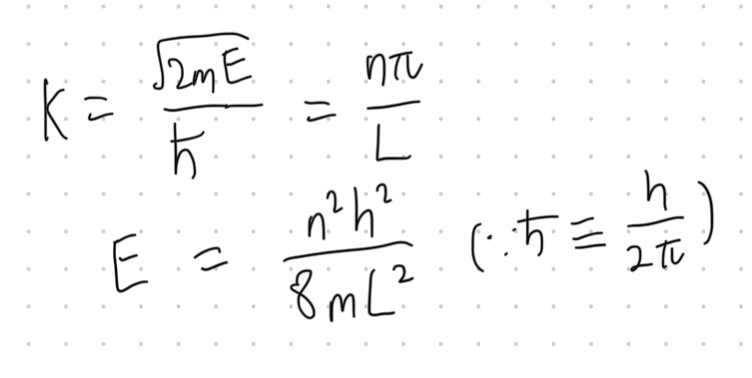 K = √(2mE)/ħ = nπ/L
E = n²h²/8mL² (∵ ħ ≡ h/2π)